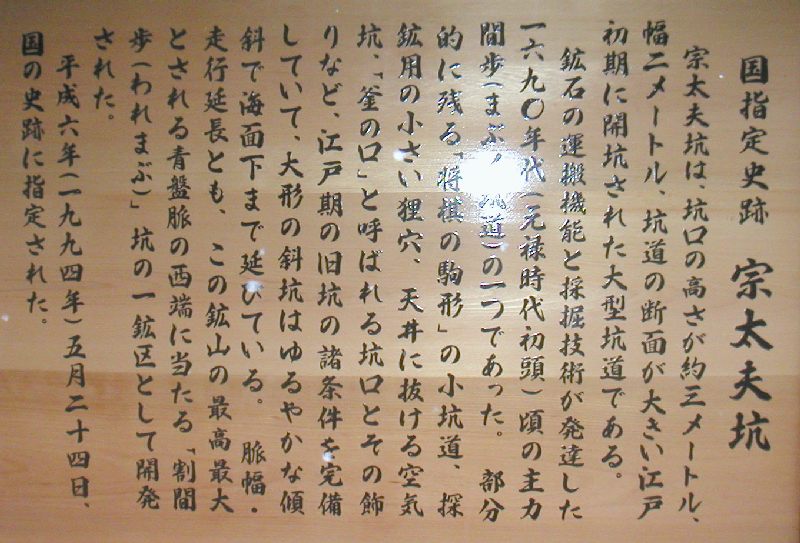 国指定史跡　宗太夫坑
宗太夫坑は、坑口の高さが約三メートル、
幅二メートル、坑道の断面が大きい江戸
初期に開坑された大型坑道である。
鉱石の運搬機能と採掘技術が発達した
一六九〇年代(元禄時代初頭)頃の主力
間歩(まぶ/坑道)の一つであった。　部分
的に残る「将棋の駒形」の小坑道、探
鉱用の小さい狸穴、天井に抜ける空気
坑、「釜の口」と呼ばれる坑口とその飾
りなど、江戸期の旧坑の諸条件を完備
していて、大形の斜坑はゆるやかな傾
斜で海面下まで延びている。　脈幅・
走行延長とも、この鉱山の最高最大
とされる青盤脈の西端に当たる「割間
歩(われまぶ)」坑の一鉱区として開発
された。
平成六年(一九九四年)五月二十四日、
国の史跡に指定された。